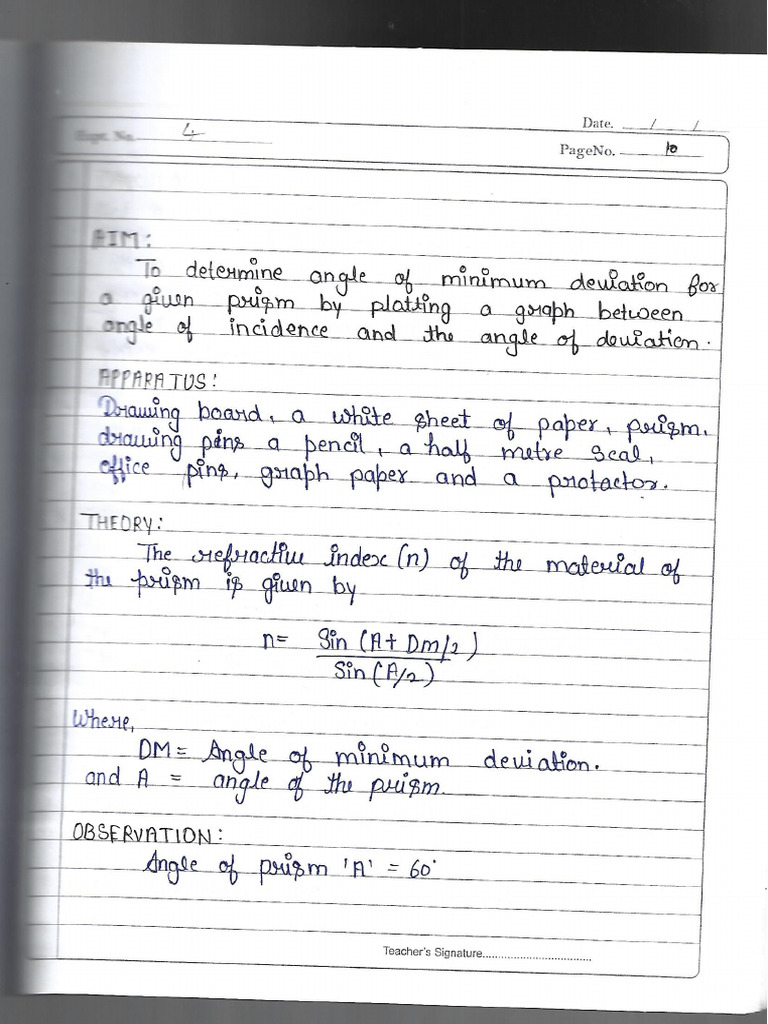 Expt. No. 4
Date. / /
PageNo. 10
AIM:
To determine angle of minimum deviation for
a given prism by platting a graph between
angle of incidence and the angle of deviation.
APPARATUS:
Drawing board, a white sheet of paper, prism,
drawing pins a pencil, a half metre scal,
office pins, graph paper and a protactor.
THEORY:
The refractive index (n) of the material of
the prism is given by
n= Sin (A+ Dm/2)
Sin (A/2)
Where,
DM = Angle of minimum deviation.
and A = angle of the prism.
OBSERVATION:
Angle of prism 'A' = 60°
Teacher's Signature